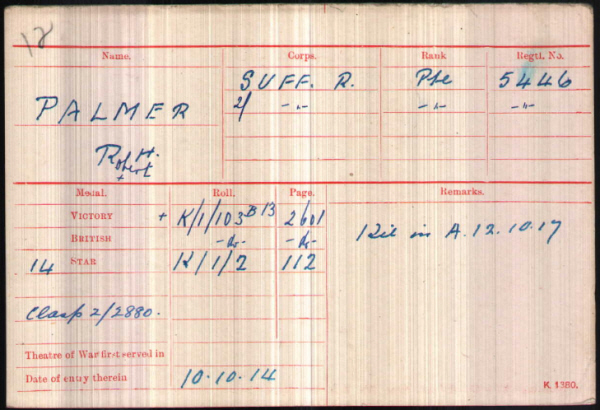 12
Name. Corps. Rank Regtl. No.
SUFF. R. Pte 5446
PALMER 2/ -"- -"- -"-
R. H.
Robert
+
Medal. Roll. Page. Remarks.
VICTORY + K/1/103 B13 2601
BRITISH -do- -do- Kil in A. 12.10.17
14 STAR K/1/2 112
Clasp 2/2880.
Theatre of War first served in
Date of entry therein 10.10.14
K 1380.